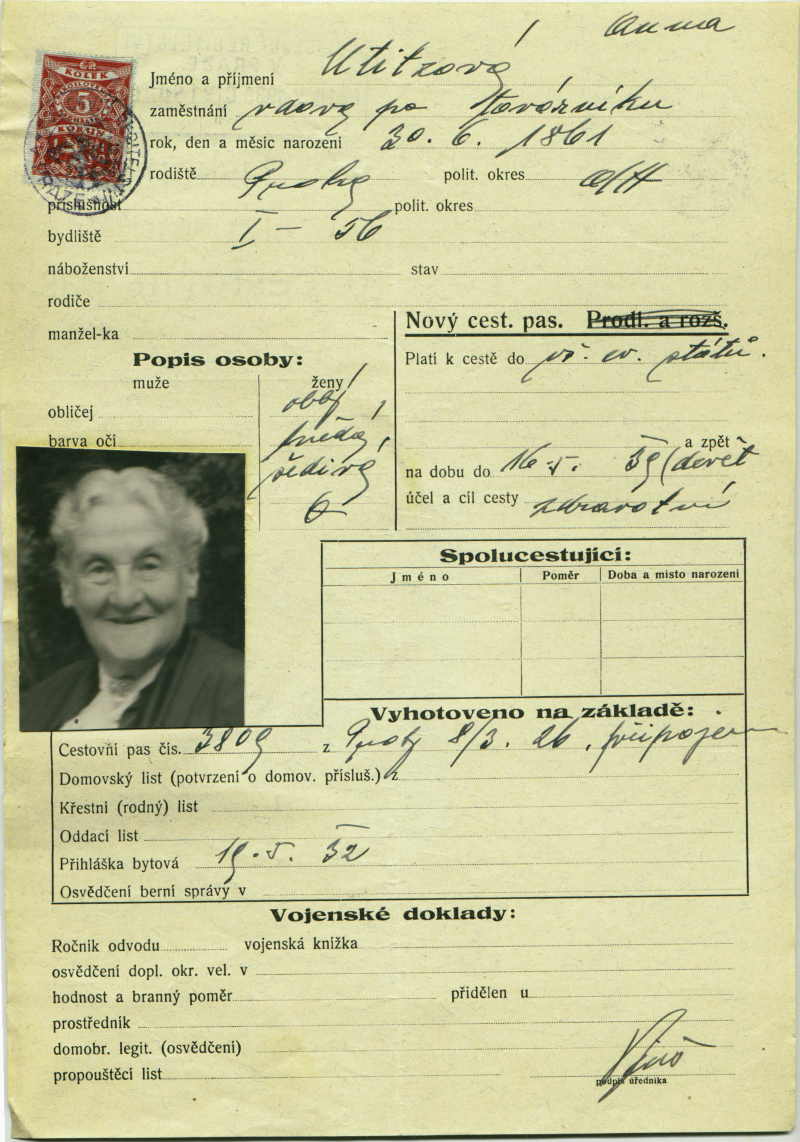 Anna
Jméno a příjmení Utitzová
zaměstnání vdova po továrníku
rok, den a měsíc narození 30. 6. 1861
rodiště Praha polit. okres
příslušnost polit. okres
bydliště I – 56
náboženství stav
rodiče
manžel-ka
Nový cest. pas. Prodl. a rozš.
Popis osoby:
muže ženy
obličej obl
barva očí hnědá
šedivá
0
Platí k cestě do vš. ev. států.
a zpět
na dobu do 16. 5. 39 (devět
účel a cíl cesty zdravotní
Spolucestující:
Jméno Poměr Doba a místo narození
Vyhotoveno na základě:
Cestovní pas čís. 3809 z Prahy 8/3. 26.
Domovský list (potvrzení o domov. přísluš.) z
Křestní (rodný) list
Oddací list
Přihláška bytová 19. 5. 32
Osvědčení berní správy v
Vojenské doklady:
Ročník odvodu vojenská knížka
osvědčení dopl. okr. vel. v
hodnost a branný poměr přidělen u
prostředník
domobr. legit. (osvědčení)
propouštěcí list
podpis úředníka
KOLEK
5
KORUN